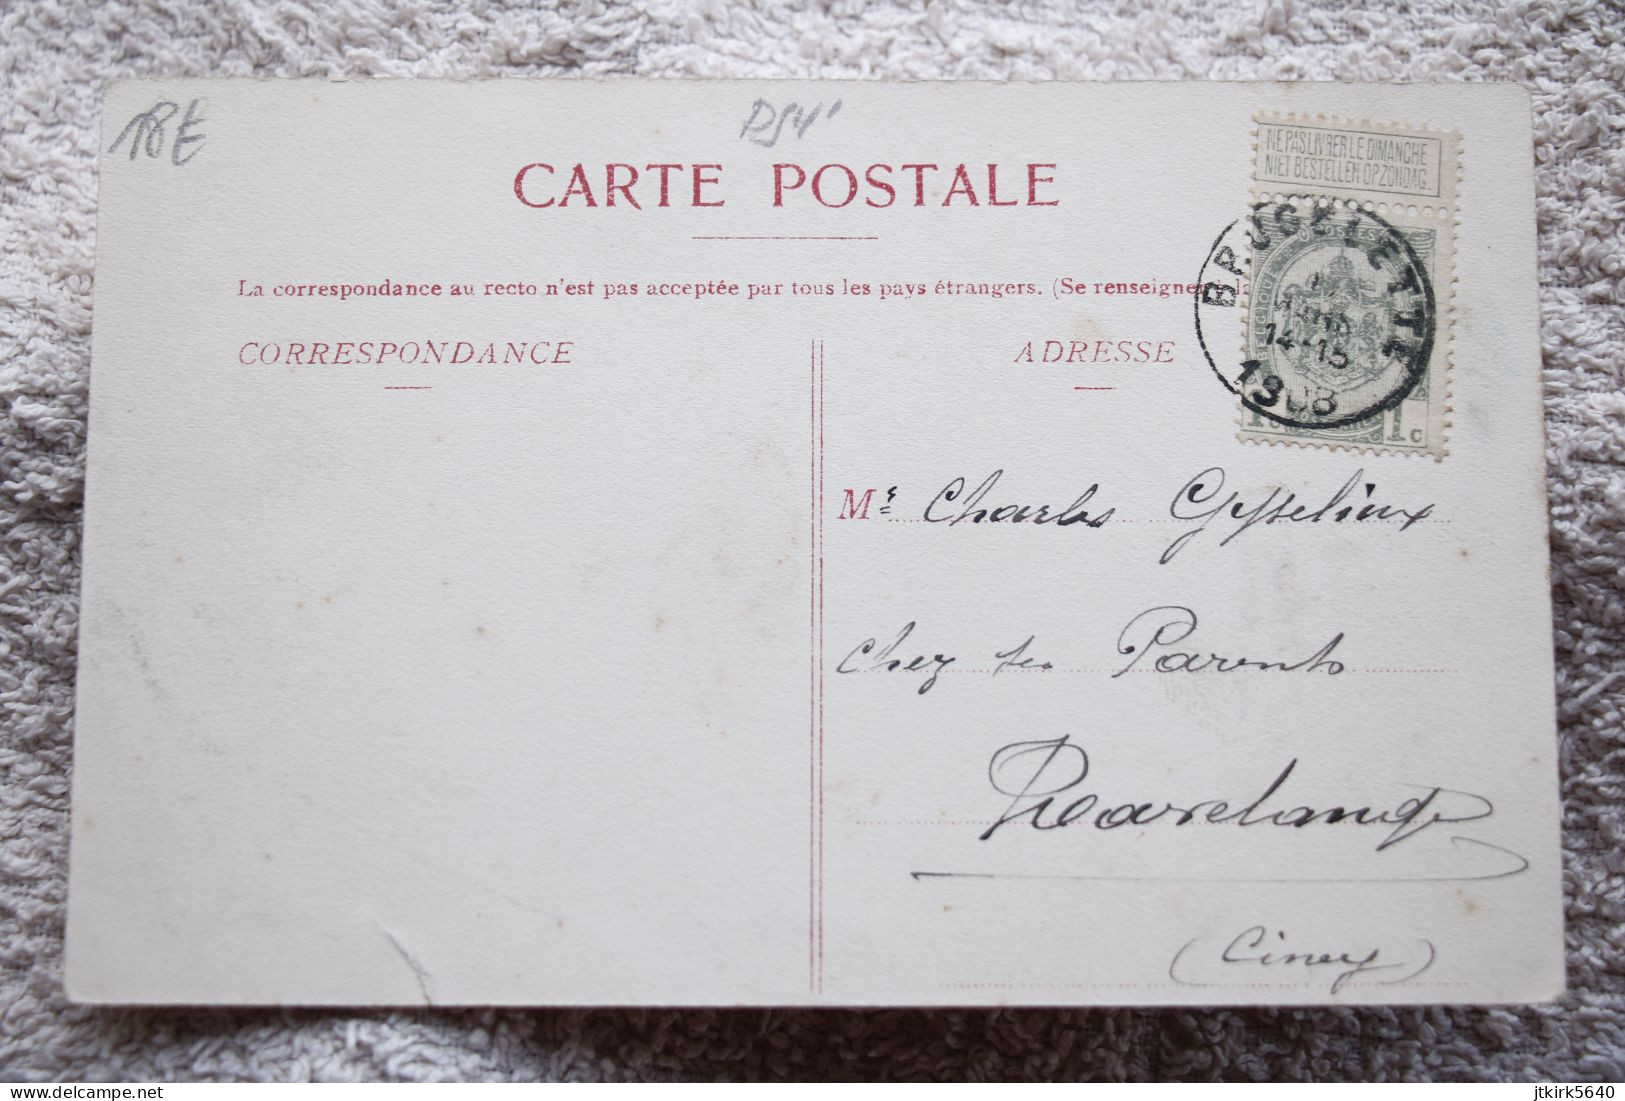 18€
NE PAS LIVRER LE DIMANCHE
NIET BESTELLEN OP ZONDAG
CARTE POSTALE
BRUGELETTE
14-15
1908
1c
La correspondance au recto n'est pas acceptée par tous les pays étrangers. (Se renseigner
CORRESPONDANCE
ADRESSE
Mr Charles Gysselinx
Chez ses Parents
(Ciney)
delcampe.net
jtkirk5640